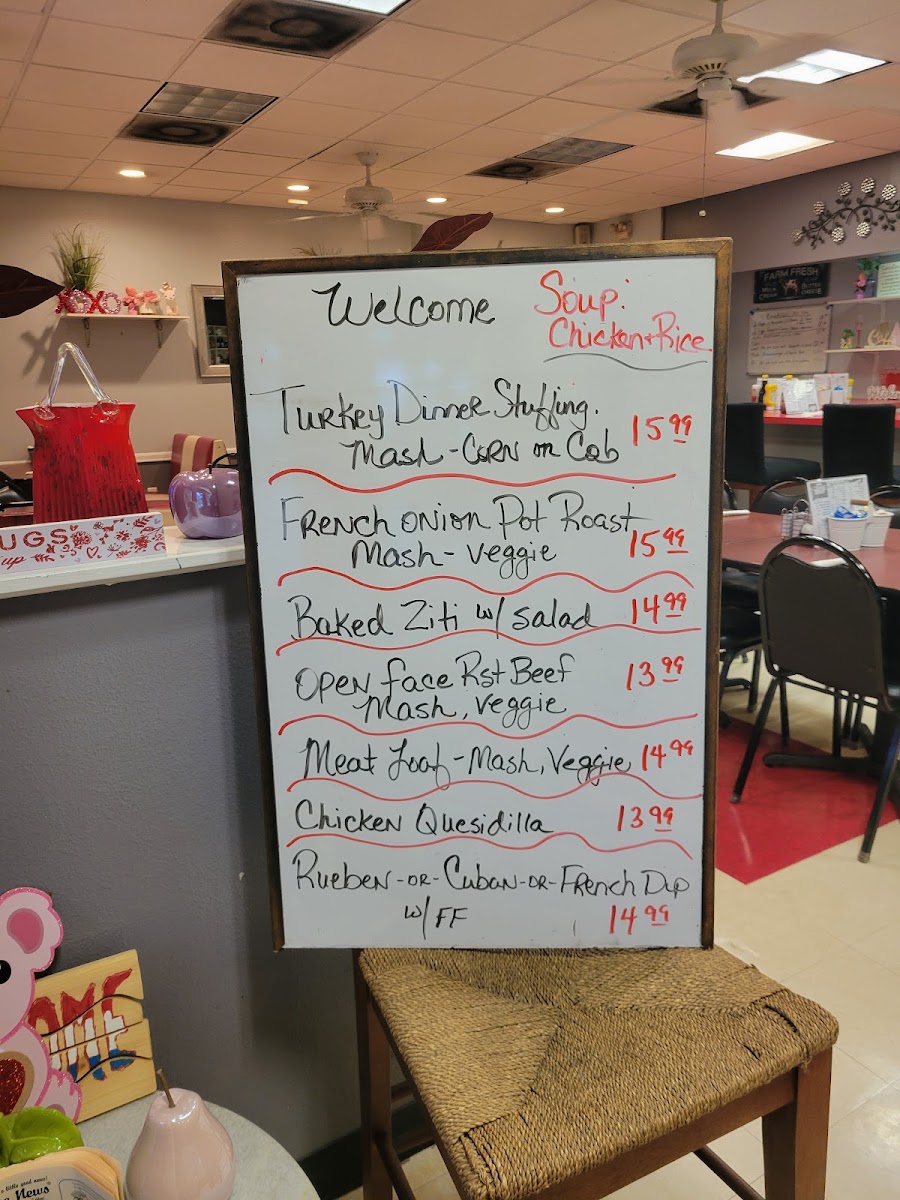 Welcome
Soup:
Chicken + Rice
Turkey Dinner Stuffing.
Mash - Corn on Cob 15 99
French onion Pot Roast
Mash - Veggie 15 99
Baked Ziti w/ salad 14 99
Open face Rst Beef 13 99
Mash, Veggie
Meat Loaf - Mash, Veggie 14 99
Chicken Quesidilla 13 99
Rueben - OR - Cuban - OR - French Dip
w/ FF 14 99
FARM FRESH
UGS
up
XOXO
a little good news!
News